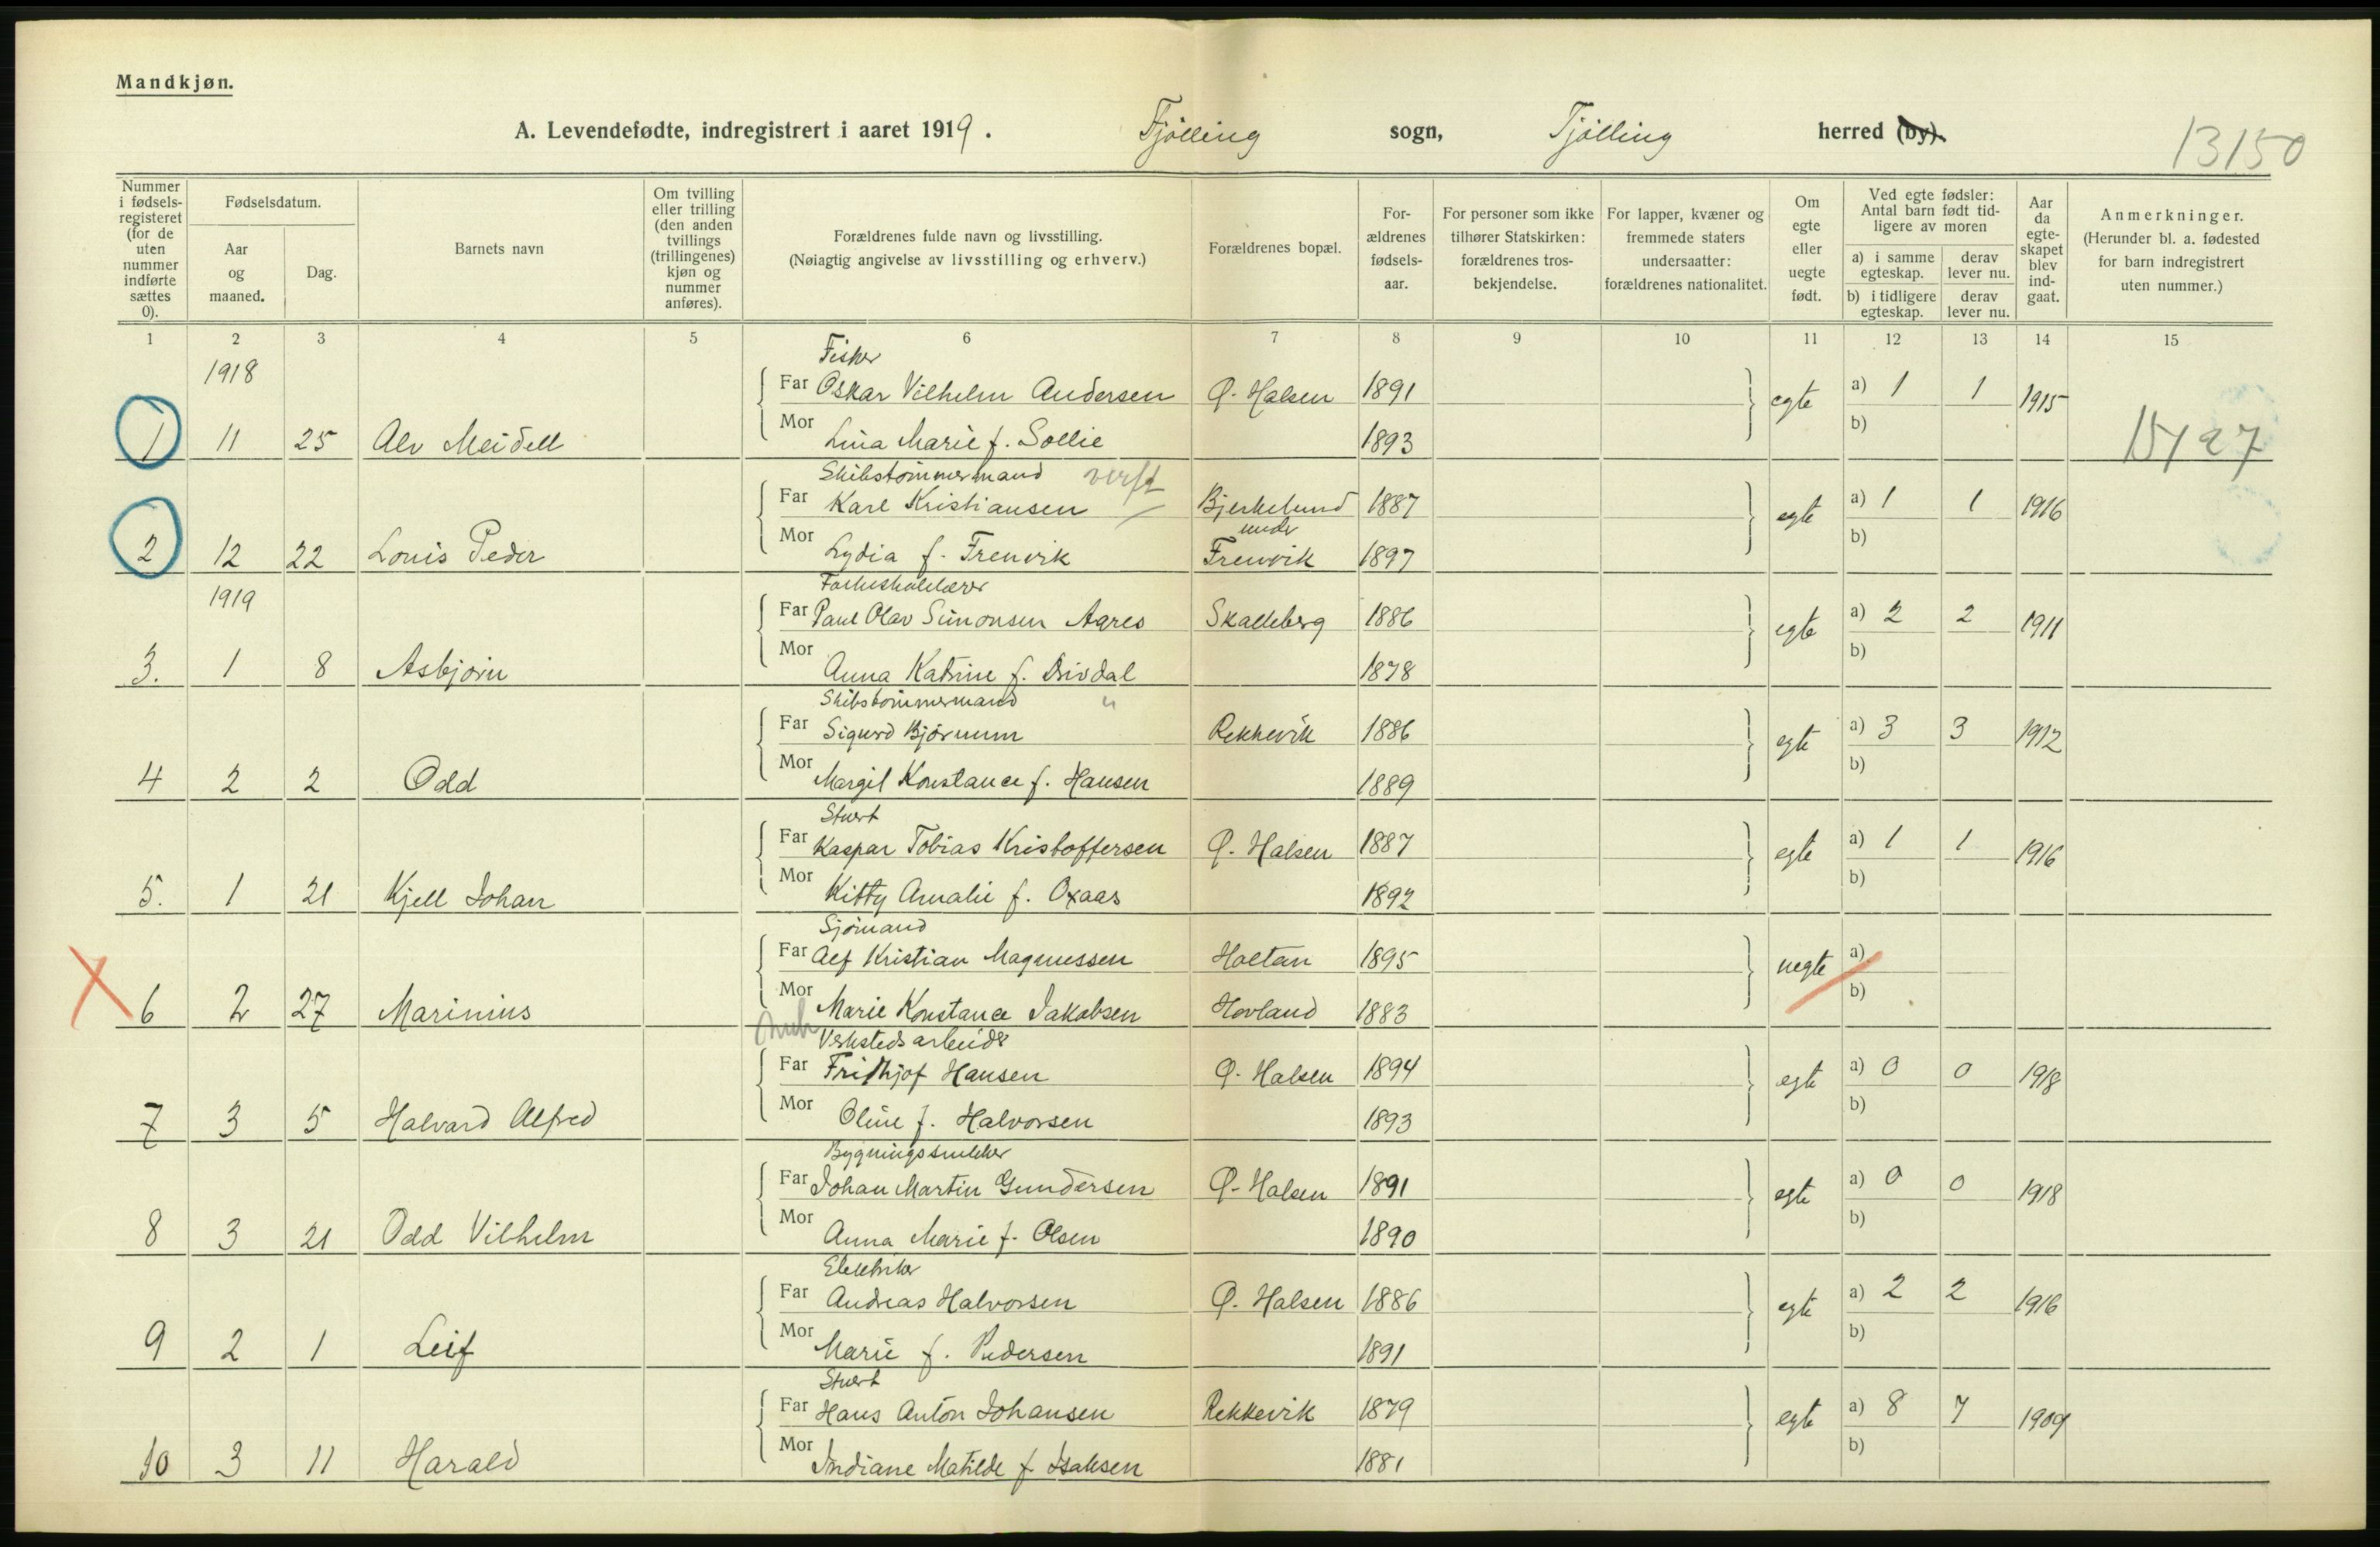 Mandkjøn.
A. Levendefødte, indregistrert i aaret 1919. Tjølling sogn, Tjølling herred (by).
13150
Nummer i fødsels-registeret (for de uten nummer indførte sættes 0).
Fødselsdatum.
Aar og maaned.
Dag.
Barnets navn
Om tvilling eller trilling (den anden tvillings (trillingenes) kjøn og nummer anføres).
Forældrenes fulde navn og livsstilling.
(Nøiagtig angivelse av livsstilling og erhverv.)
Forældrenes bopæl.
For-ældrenes fødsels-aar.
For personer som ikke tilhører Statskirken: forældrenes tros-bekjendelse.
For lapper, kvæner og fremmede staters undersaatter: forældrenes nationalitet.
Om egte eller uegte født.
Ved egte fødsler: Antal barn født tid-ligere av moren
a) i samme egteskap.
derav lever nu.
b) i tidligere egteskap.
derav lever nu.
Aar da egte-skapet blev ind-gaat.
Anmerkninger.
(Herunder bl. a. fødested for barn indregistrert uten nummer.)
1 2 3 4 5 6 7 8 9 10 11 12 13 14 15
1918
Fisker
Far Oskar Vilhelm Andersen Ø. Halsen 1891 egte a) 1 1 1915
b)
1 11 25 Alv Meidell Mor Lina Marie f. Sollie 1893
15/27
Skibstømmermand verft
Far Karl Kristiansen Bjerkelund 1887 egte a) 1 1 1916
under
b)
2 12 22 Louis Peder Mor Lydia f. Frenvik Frenvik 1897
1919
Folkeskolelærer
Far Paul Olav Simonsen Agres Skalleberg 1886 egte a) 2 2 1911
b)
3. 1 8 Asbjørn Mor Anna Katrine f. Divdal 1878
Skibstømmermand "
Far Sigurd Bjørnum Rekkevik 1886 egte a) 3 3 1912
b)
4 2 2 Odd Mor Margit Konstance f. Hansen 1889
Stuert
Far Kaspar Tobias Kristoffersen Ø. Halsen 1887 egte a) 1 1 1916
b)
5. 1 21 Kjell Johan Mor Kitty Amalie f. Oxaas 1892
Sjømand
Far Alf Kristian Magnussen Holtan 1895 uegte a)
b)
6 2 27 Marinius Mor Marie Konstance Jakobsen Hovland 1883
Verkstedsarbeider
Far Fridhjof Hansen Ø. Halsen 1894 egte a) 0 0 1918
b)
7 3 5 Halvard Alfred Mor Oline f. Halvorsen 1893
Bygningssnekker
Far Johan Martin Gundersen Ø. Halsen 1891 egte a) 0 0 1918
b)
8 3 21 Odd Vilhelm Mor Anna Marie f. Olsen 1890
Elektriker
Far Andreas Halvorsen Ø. Halsen 1886 egte a) 2 2 1916
b)
9 2 1 Leif Mor Marie f. Pedersen 1891
Stuert
Far Hans Anton Johansen Rekkevik 1879 egte a) 8 7 1909
b)
10 3 11 Harald Mor Indiane Matilde f. Isaksen 1881